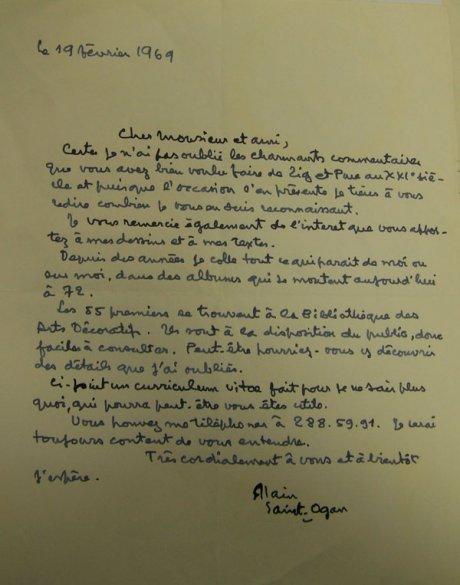 le 19 février 1969
Cher Monsieur et ami,
Certes je n'ai pas oublié les charmants commentaires
que vous avez bien voulu faire de Zig et Puce au XXIe siè-
cle et puisque l'occasion s'en présente je tiens à vous
redire combien je vous en suis reconnaissant.
Je vous remercie également de l'interet que vous appor-
tez à mes dessins et à mes textes.
Depuis des années je colle tout ce qui parait de moi ou
sur moi, dans des albums qui se montent aujourd'hui
à 72.
Les 55 premiers se trouvent à la Bibliothèque des
Arts Décoratifs. Ils sont à la disposition du public, donc
faciles à consulter. Peut-être pourriez-vous y découvrir
des détails que j'ai oubliés.
Ci-joint un curriculum vitae fait pour je ne sais plus
quoi, qui pourra peut-être vous êtes utile.
Vous pouvez me téléphoner à 288.59.91. Je serai
toujours content de vous entendre.
Très cordialement à vous et à bientôt
j'espère.
Alain
Saint-Ogan